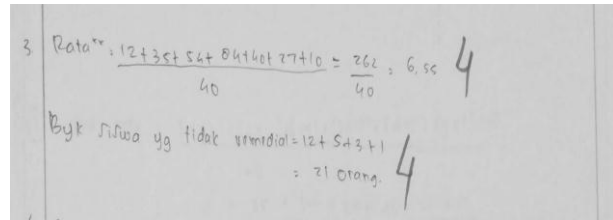 3. Rata²" = 12+35+54+84+40+27+10 = 262 = 6,55 4
40 40
Byk siswa yg tidak remedial = 12+5+3+1
= 21 orang. 4